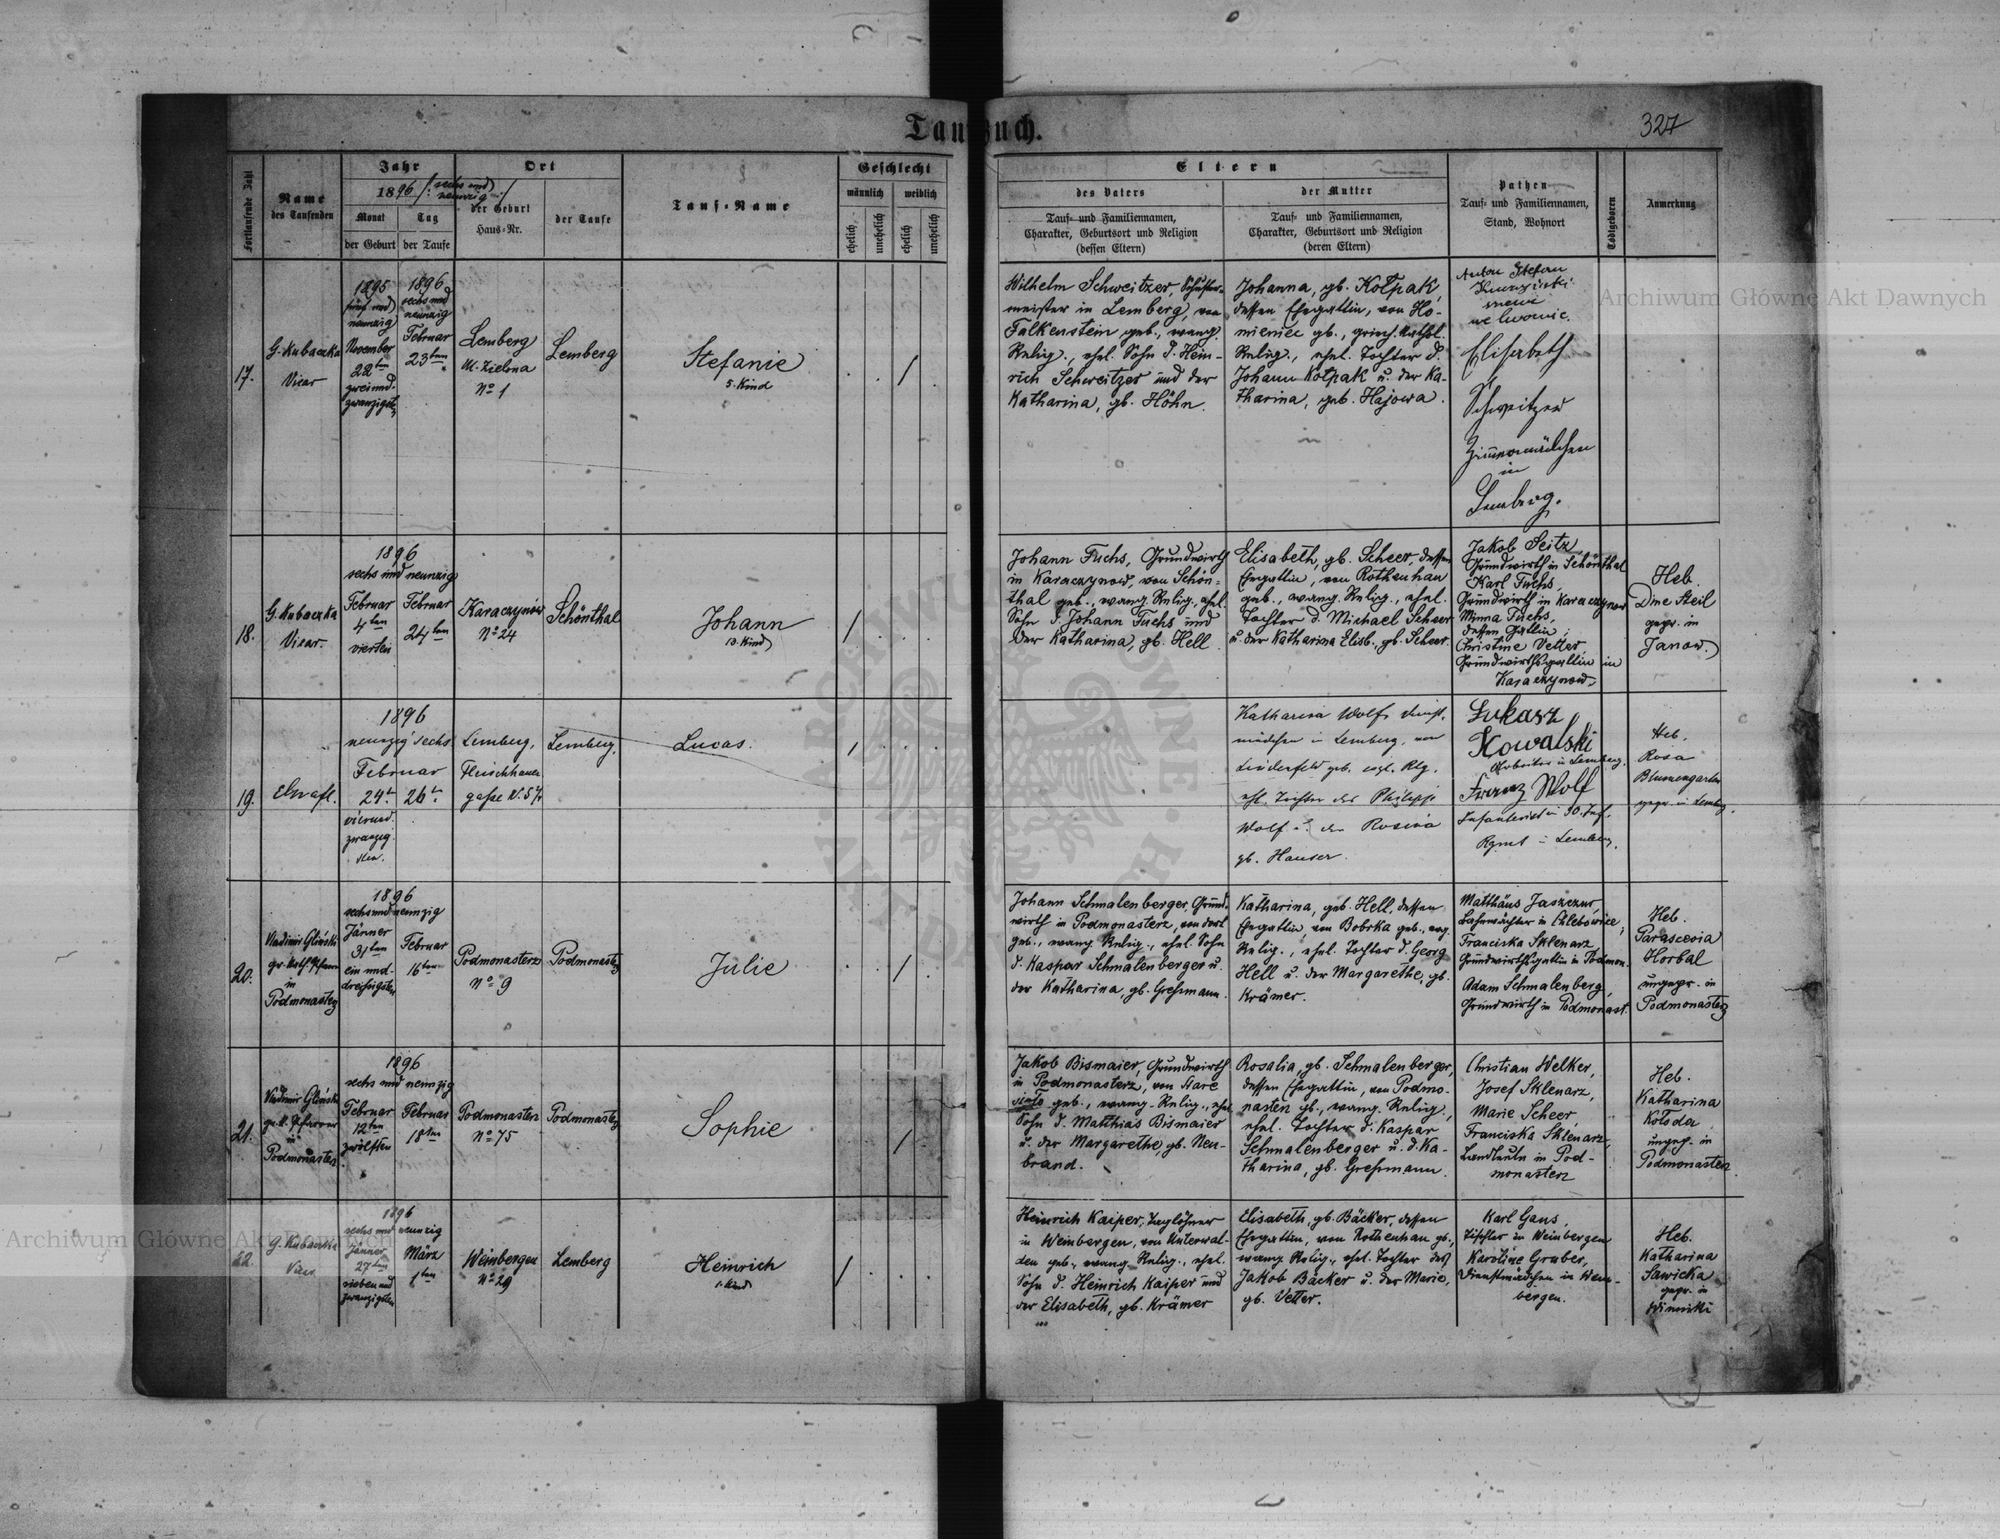 Taufbuch.
327
Fortlaufende Zahl
Name
des Taufenden
Jahr
1896 /: sechs und
neunzig :/
Monat
der Geburt
Tag
der Taufe
Ort
der Geburt
Haus-Nr.
der Taufe
Tauf-Name
Geschlecht
männlich
weiblich
ehelich
unehelich
ehelich
unehelich
Eltern
des Vaters
Tauf- und Familiennamen,
Charakter, Geburtsort und Religion
(dessen Eltern)
der Mutter
Tauf- und Familiennamen,
Charakter, Geburtsort und Religion
(deren Eltern)
Pathen
Tauf- und Familiennamen,
Stand, Wohnort
Todtgeboren
Anmerkung
17.
G. Kubaczka
Vicar
1895
fünf und
neunzig
November
22ten
zwei und
zwanzigsten
1896
sechs und
neunzig
Februar
23ten
Lemberg
Ul. Zielona
No 1
Lemberg
Stefanie
5. Kind
Wilhelm Schweitzer, Schuster-
meister in Lemberg, von
Falkenstein geb., evang.
Relig., ehel. Sohn d. Hein-
rich Schweitzer und der
Katharina, gb. Höhn.
Johanna, gb. Kołpak,
dessen Ehegattin, von Ho-
mieniec gb., griech. kathol.
Relig., ehel. Tochter d.
Johann Kołpak u. der Ka-
tharina, geb. Hajowa.
Anton Stefan
we Lwowie.
Elisabeth
Schweitzer
Zimmermädchen
in
Lemberg.
18.
G. Kubaczka
Vicar.
1896
sechs und neunzig
Februar
4ten
vierten
Februar
24ten
Karaczynów
No 24
Schönthal
Johann
(3. Kind)
Johann Fuchs, Grundwirth
in Karaczynow, von Schön-
thal geb., evang. Relig., ehel.
Sohn d. Johann Fuchs und
der Katharina, gb. Hell.
Elisabeth, gb. Scheer, dessen
Ehegattin, von Rothenhan
geb., evang. Relig., ehel.
Tochter d. Michael Scheer
u. der Katharina Elisb., gb. Scheer.
Jakob Seitz,
Grundwirth in Schönthal
Karl Fuchs,
Grundwirth in Karaczynow
Minna Fuchs,
dessen Gattin,
Christine Vetter,
Grundwirthsgattin in
Karaczynow.
Heb.
Dine Steil
gepr. in
Janow.
19.
1896
neunzig sechs
Februar
24t. 26t.
vierund
zwanzig
sten.
Lemberg,
Fleischhauer
gasse N. 5
Lemberg.
Lucas.
Katharina Wolf, Dienst-
mädchen in Lemberg, von
Lindenfeld geb. evgl. Rlg.
ehl. Tochter des Philipp
Wolf u. der Rosina
gb. Hauser.
Lukasz
Kowalski
Arbeiter in Lemberg.
Franz Wolf
Infanterist in 30. Inf.
Rgmt in Lemberg.
Heb.
Rosa
Blumengarten
gepr. in Lemberg.
20.
Vladimir Gliński
gr. kath. Pfarrer
in
Podmonasterz
1896
sechs und neunzig
Jänner
31ten
ein und
dreißigsten
Februar
16ten
Podmonasterz
No 9
Podmonasterz
Julie
Johann Schmalenberger, Grund-
wirth in Podmonasterz, von dort
geb., evang. Relig., ehel. Sohn
d. Kaspar Schmalenberger u.
der Katharina, gb. Gressmann.
Katharina, geb. Hell, dessen
Ehegattin, von Bobrka geb., evg.
Relig., ehel. Tochter d. Georg
Hell u. der Margarethe, gb.
Krämer.
Matthäus Jaszczur,
Bahnwächter in Chlebowice,
Franciska Sklenarz,
Grundwirthsgattin in Podmon.
Adam Schmalenberg,
Grundwirth in Podmonast.
Heb.
Parascevia
Horbal
ungepr. in
Podmonasterz
21.
Vladimir Gliński
gr. k. Pfarrer
in
Podmonasterz
1896
sechs und neunzig
Februar
12ten
zwölften
Februar
18ten
Podmonasterz
No 75
Podmonasterz
Sophie
Jakob Bismaier, Grundwirth
in Podmonasterz, von Stare
sioło geb., evang. Relig., ehel.
Sohn d. Matthias Bismaier
u. der Margarethe, gb. Neu-
brand.
Rosalia, gb. Schmalenberger,
dessen Ehegattin, von Podmo-
nasterz gb., evang. Relig.,
ehel. Tochter d. Kaspar
Schmalenberger u. d. Ka-
tharina, gb. Gressmann.
Christian Welker,
Josef Sklenarz,
Marie Scheer,
Franciska Sklenarz,
Landleute in Pod-
monasterz
Heb.
Katharina
Kołsda
ungepr. in
Podmonasterz
22.
G. Kubaczka
Vicar
1896
sechs und neunzig
Jänner
27ten
sieben und
zwanzigsten
März
1ten
Weinbergen
No 29
Lemberg
Heinrich
1. Kind
Heinrich Kaiper, Taglöhner
in Weinbergen, von Unterwal-
den geb., evang. Relig., ehel.
Sohn d. Heinrich Kaiper und
der Elisabeth, gb. Krämer
Elisabeth, gb. Bäcker, dessen
Ehegattin, von Rothenhan gb.,
evang. Relig., ehel. Tochter des
Jakob Bäcker u. der Marie,
gb. Vetter.
Karl Gans,
Tischler in Weinbergen
Karoline Gruber,
Dienstmädchen in Wein-
bergen.
Heb.
Katharina
Sawicka
gepr. in
Winniki
Archiwum Główne Akt Dawnych
Archiwum Główne Akt Dawnych